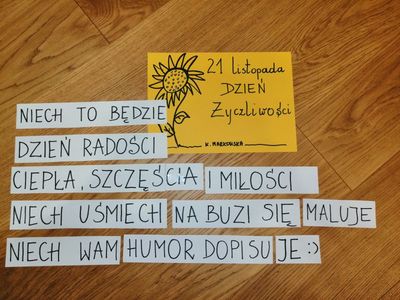 21 listopada
DZIEŃ
Życzliwości
K. MARKOWSKA
NIECH TO BĘDZIE
DZIEŃ RADOŚCI
CIEPŁA, SZCZĘŚCIA I MIŁOŚCI
NIECH UŚMIECH NA BUZI SIĘ MALUJE
NIECH WAM HUMOR DOPISUJE :)